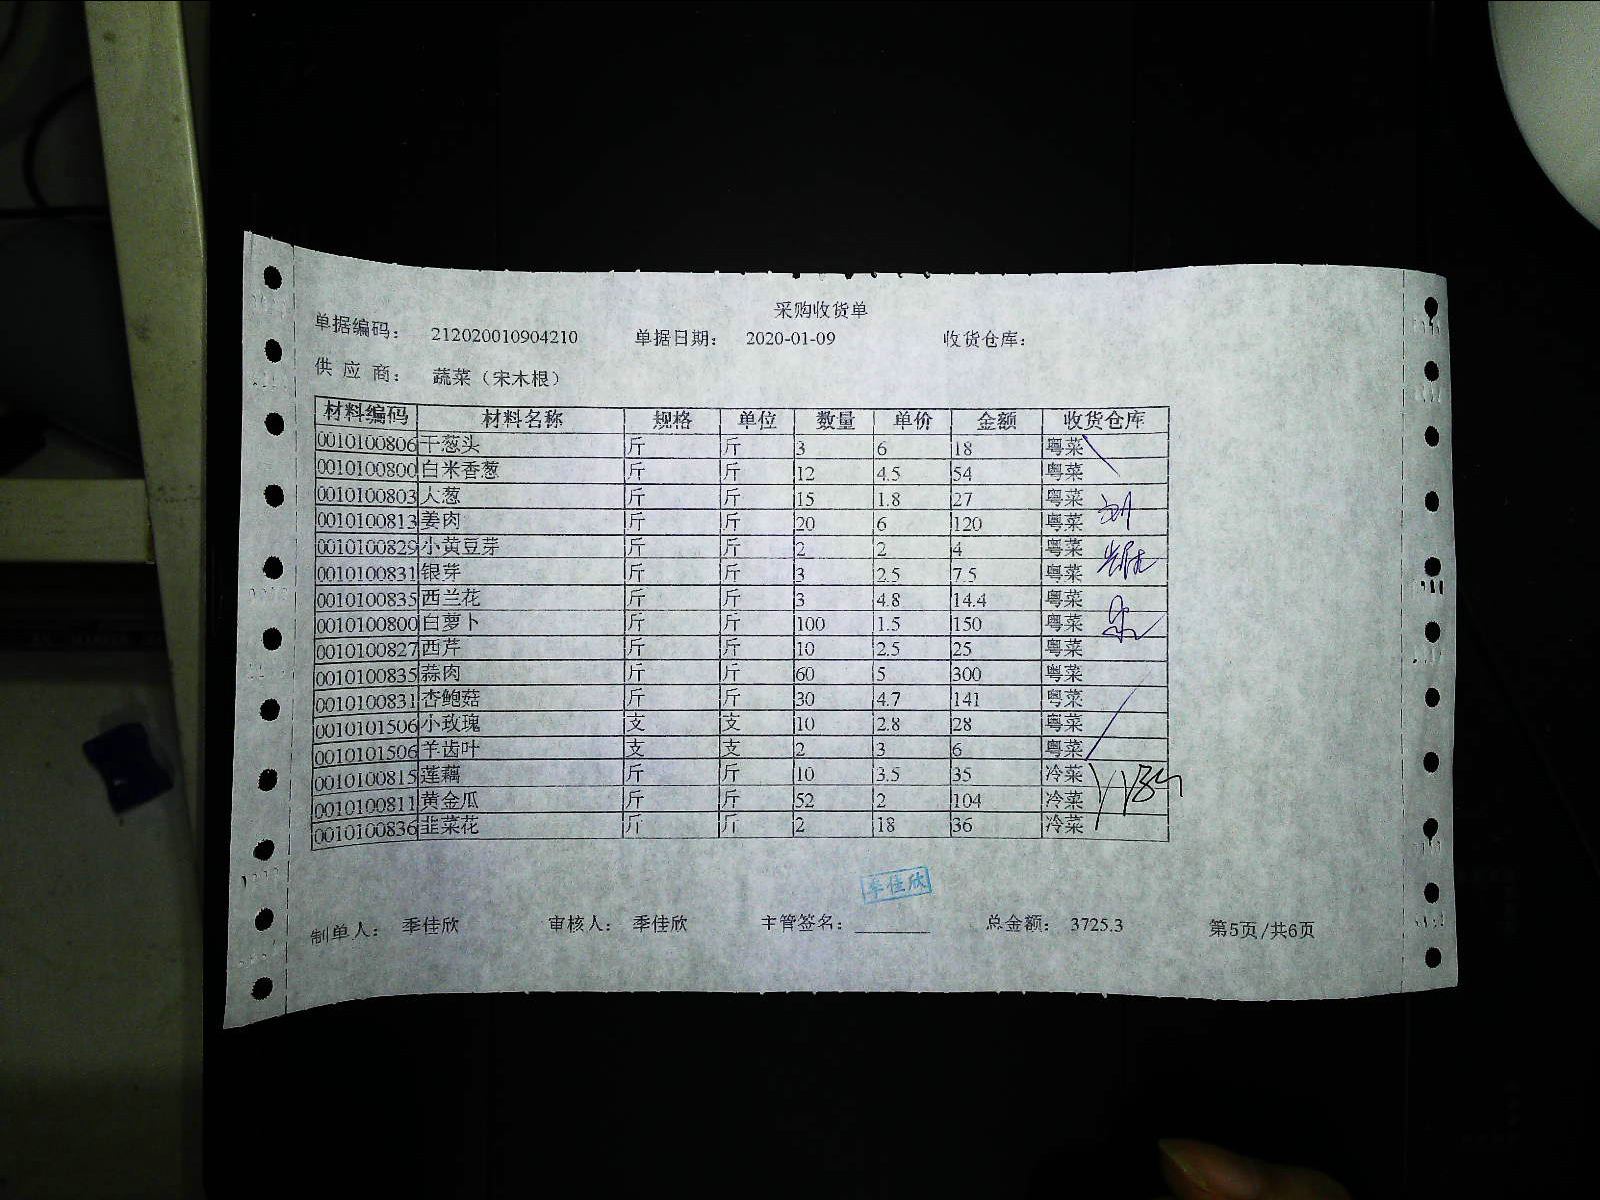 采购收货单
单据编码： 212020010904210 单据日期： 2020-01-09 收货仓库：
供 应 商： 蔬菜（宋木根）
材料编码 材料名称 规格 单位 数量 单价 金额 收货仓库
0010100806 干葱头 斤 斤 3 6 18 粤菜
0010100800 白米香葱 斤 斤 12 4.5 54 粤菜
0010100803 大葱 斤 斤 15 1.8 27 粤菜
0010100813 姜肉 斤 斤 20 6 120 粤菜
0010100829 小黄豆芽 斤 斤 2 2 4 粤菜
0010100831 银芽 斤 斤 3 2.5 7.5 粤菜
0010100835 西兰花 斤 斤 3 4.8 14.4 粤菜
0010100800 白萝卜 斤 斤 100 1.5 150 粤菜
0010100827 西芹 斤 斤 10 2.5 25 粤菜
0010100835 蒜肉 斤 斤 60 5 300 粤菜
0010100831 杏鲍菇 斤 斤 30 4.7 141 粤菜
0010101506 小玫瑰 支 支 10 2.8 28 粤菜
0010101506 羊齿叶 支 支 2 3 6 粤菜
0010100815 莲藕 斤 斤 10 3.5 35 冷菜
0010100811 黄金瓜 斤 斤 52 2 104 冷菜
0010100836 韭菜花 斤 斤 2 18 36 冷菜
季佳欣
制单人： 季佳欣 审核人： 季佳欣 主管签名： 总金额： 3725.3 第5页/共6页